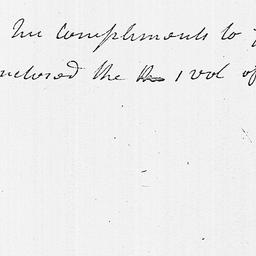 compliments to
nclosed the 1 vol of